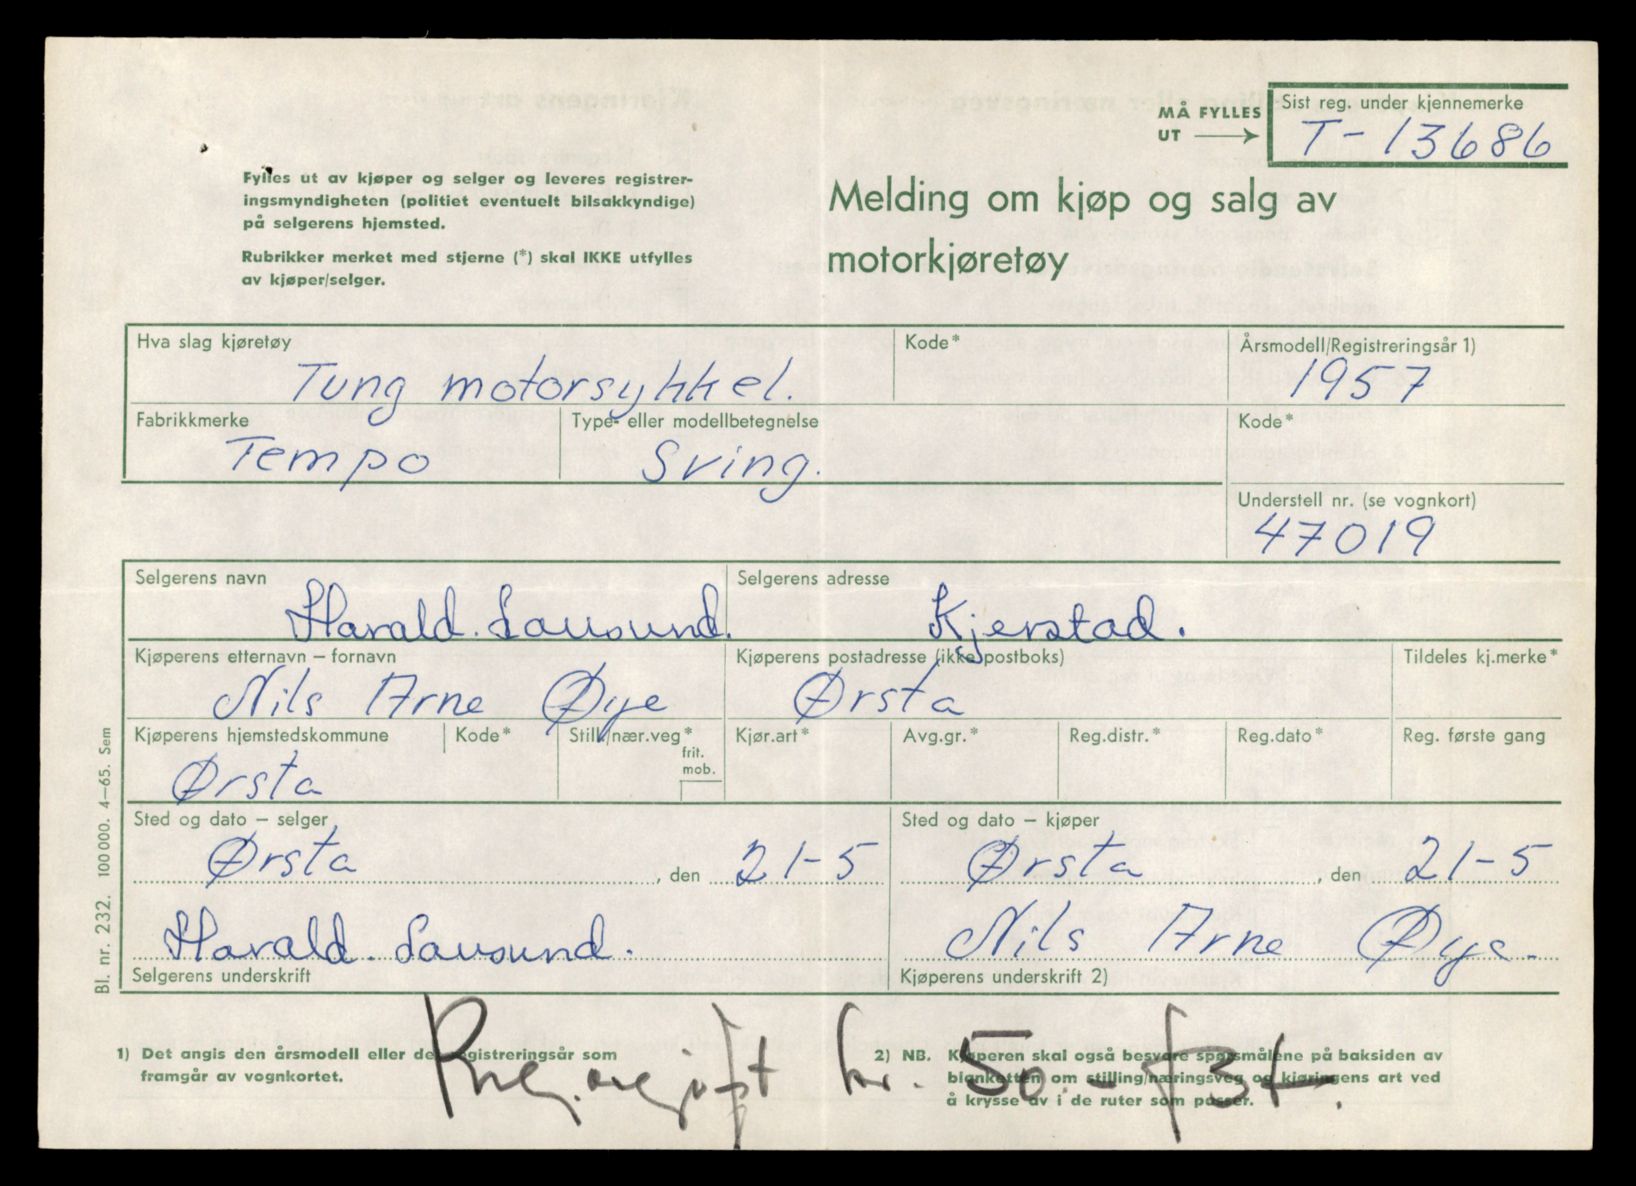 MÅ FYLLES
UT →
Sist reg. under kjennemerke
T-13686
Fylles ut av kjøper og selger og leveres registrer-
ingsmyndigheten (politiet eventuelt bilsakkyndige)
på selgerens hjemsted.
Rubrikker merket med stjerne (*) skal IKKE utfylles
av kjøper/selger.
Melding om kjøp og salg av
motorkjøretøy
Hva slag kjøretøy
Tung motorsykkel.
Kode*
Årsmodell/Registreringsår 1)
1957
Fabrikkmerke
Tempo
Type- eller modellbetegnelse
Sving.
Kode*
Understell nr. (se vognkort)
47019
Selgerens navn
Harald Sausund.
Selgerens adresse
Kjerstad.
Kjøperens etternavn – fornavn
Nils Arne Øye
Kjøperens postadresse (ikke postboks)
Ørsta
Tildeles kj.merke*
Kjøperens hjemstedskommune
Ørsta
Kode*
Still./nær.veg*
frit.
mob.
Kjør.art*
Avg.gr.*
Reg.distr.*
Reg.dato*
Reg. første gang
Sted og dato – selger
Ørsta, den 21-5
Sted og dato – kjøper
Ørsta, den 21-5
Harald Sausund.
Selgerens underskrift
Nils Arne Øye.
Kjøperens underskrift 2)
Bl. nr. 232. 100 000. 4–65. Sem
1) Det angis den årsmodell eller det registreringsår som
framgår av vognkortet.
2) NB. Kjøperen skal også besvare spørsmålene på baksiden av
blanketten om stilling/næringsveg og kjøringens art ved
å krysse av i de ruter som passer.
kr. 50.-